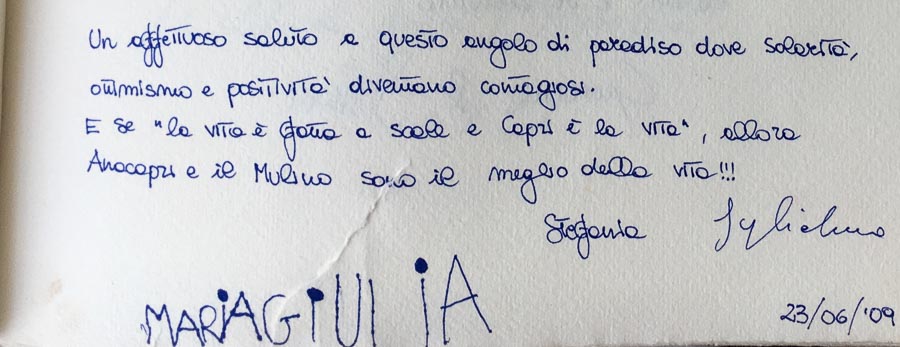 Un affettuoso saluto a questo angolo di paradiso dove solarità,
ottimismo e positività diventano contagiosi.
E se "la vita è fatta a scale e Capri è la vita", allora
Anacapri e il Mulino sono il meglio della vita!!!
Stefania
MARIAGIULIA
23/06/'09